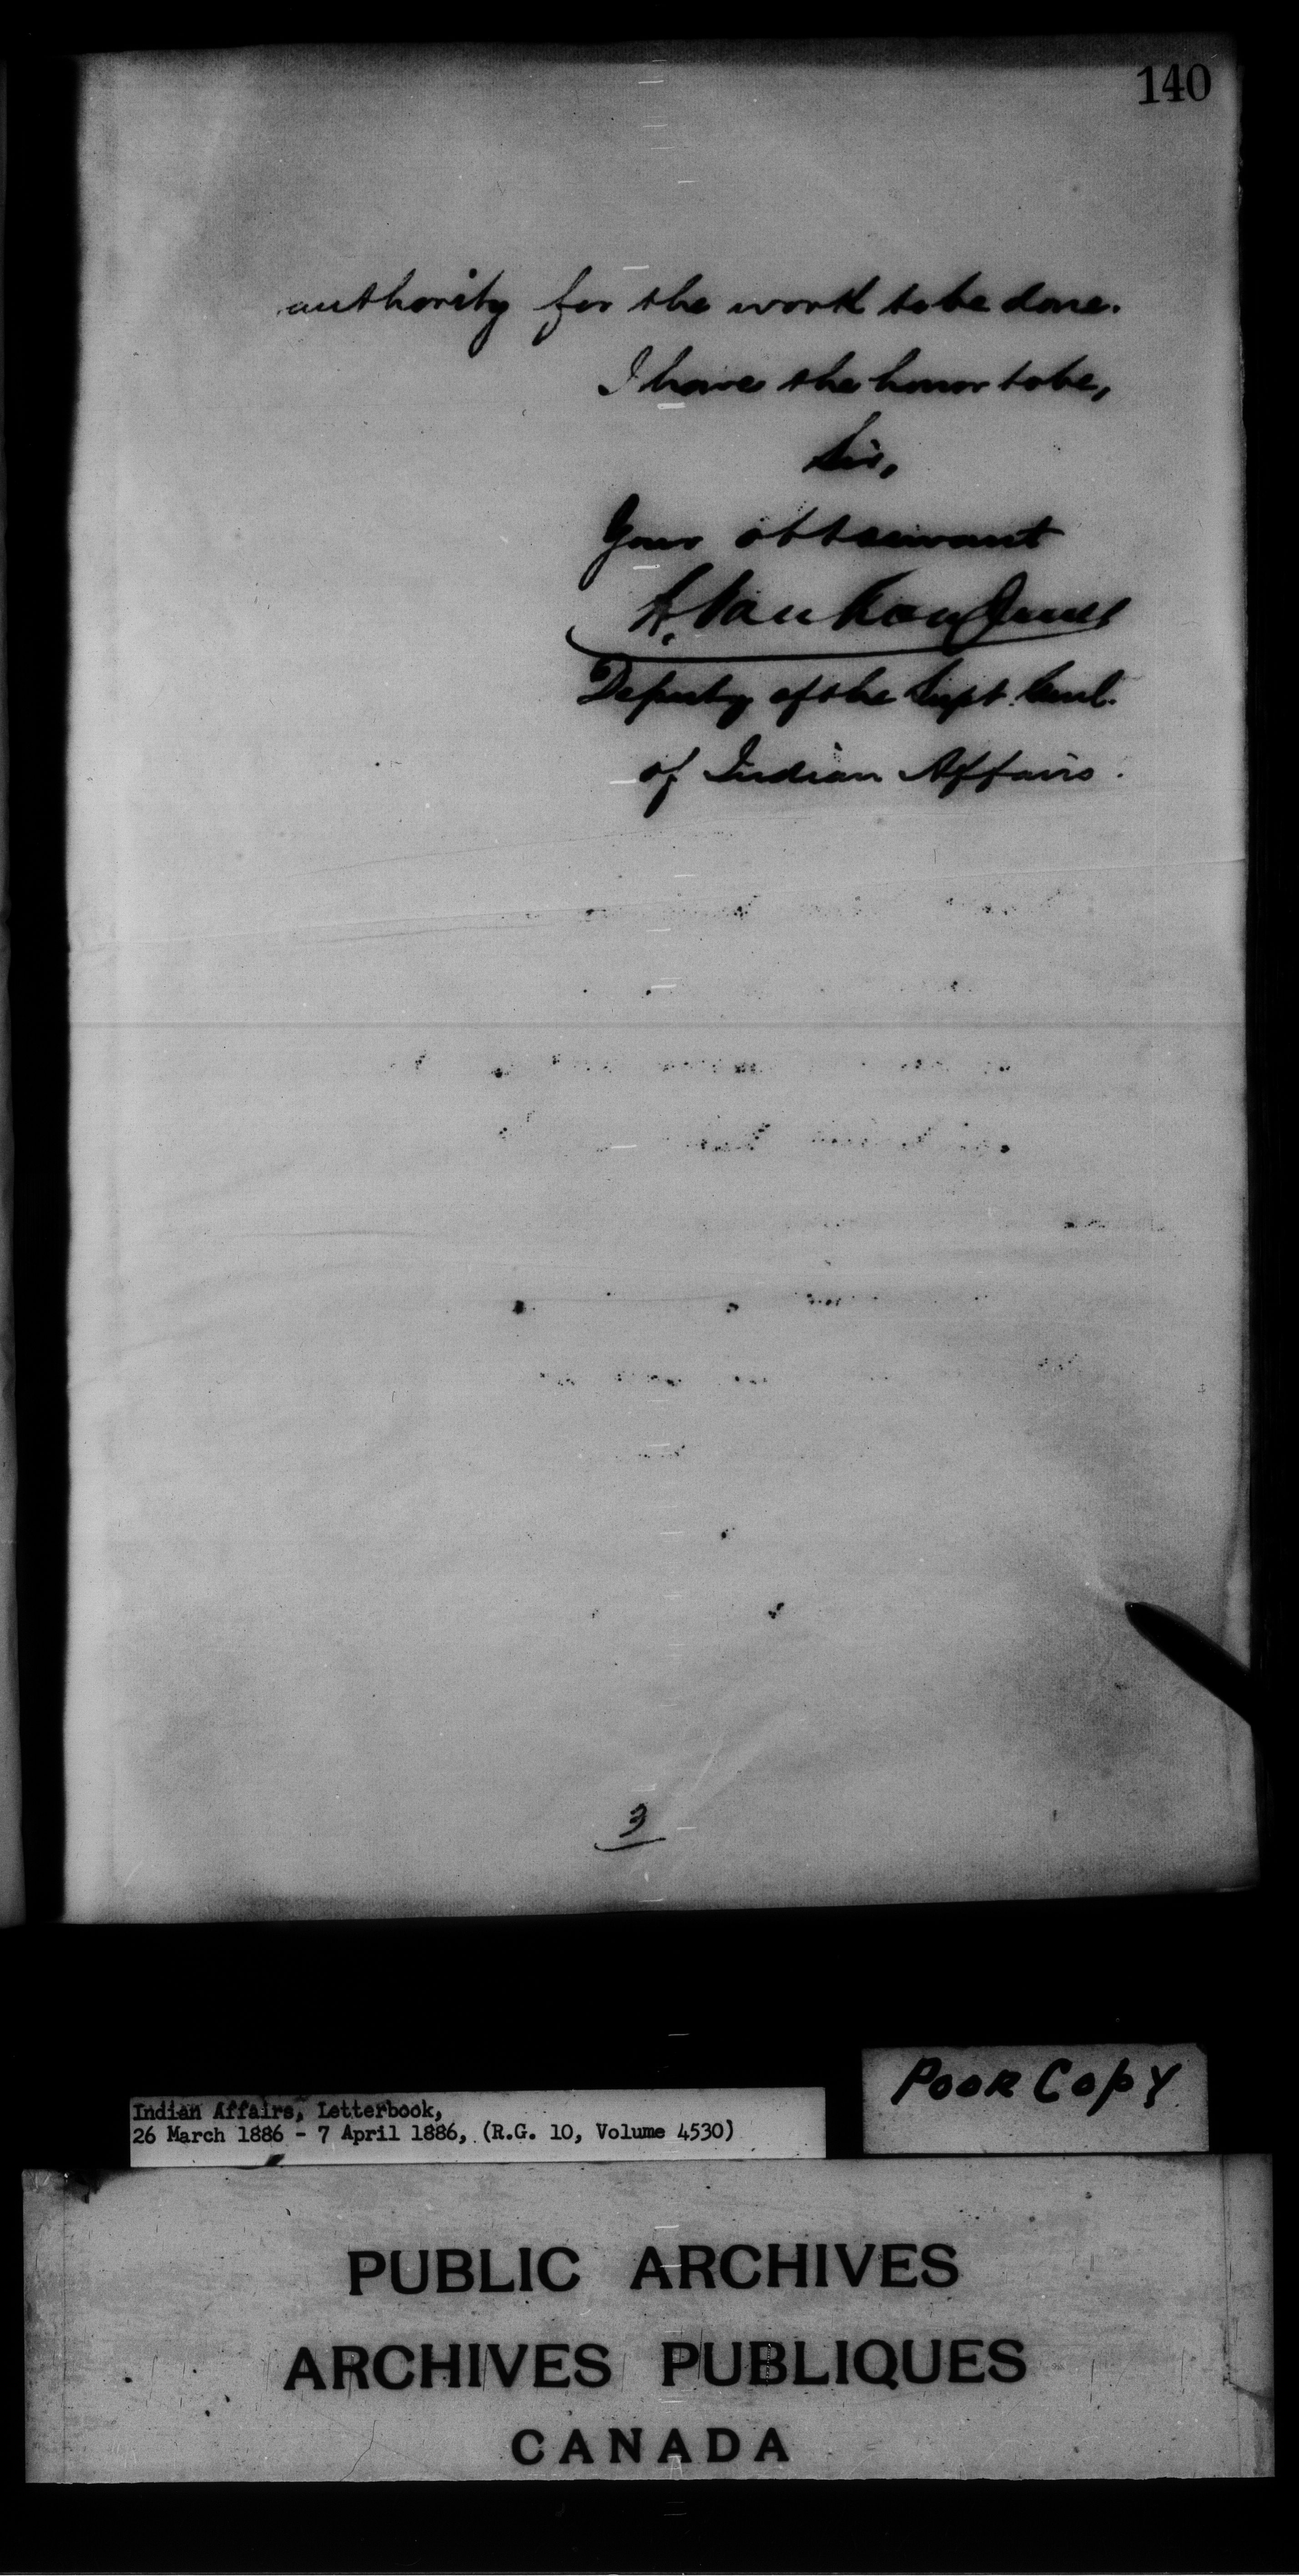 140
authority for the work to be done.
I have the honor to be,
Sir,
Your obt servant
L. VanKoughnet
Deputy of the Supt. Genl.
of Indian Affairs.
3
Poor Copy
Indian Affairs, Letterbook,
26 March 1886 - 7 April 1886, (R.G. 10, Volume 4530)
PUBLIC ARCHIVES
ARCHIVES PUBLIQUES
CANADA